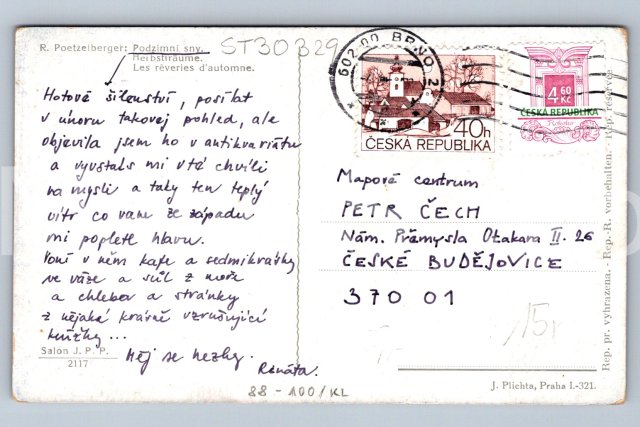 R. Poetzelberger: Podzimní sny.
Herbstträume.
Les rêveries d'automne.
ST30829
Hotové šílenství, posílat
v únoru takovej pohled, ale
objevila jsem ho v antikvariátu
a vyvstals mi v té chvíli
na mysli a taky ten teplý
vítr co vane ze západu
mi poplete hlavu.
Voní v něm kafe a sedmikrásky
ve váze a sůl z moře
a chlebov a stránky
z nějaké krásně vzrušující
knížky...
Měj se hezky.
Renáta.
Salon J. P. P.
2117
88 - 100/KL
602 00 BRNO 2
40h
ČESKÁ REPUBLIKA
4 60
Kč
ČESKÁ REPUBLIKA
Mapové centrum
PETR ČECH
Nám. Přemysla Otakara II. 26
ČESKÉ BUDĚJOVICE
370 01
15,-
J. Plichta, Praha I.-321.
Rep. pr. vyhrazena. - Rep.-R. vorbehalten. - Rep. réservée.